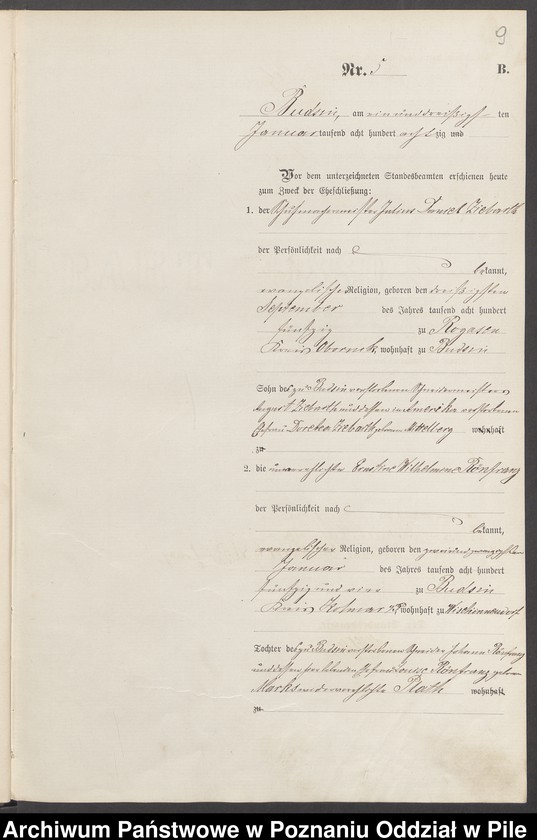 9
Nr. 5 B.
Budsin, am einunddreißigsten
Januar tausend acht hundert achtzig und
Vor dem unterzeichneten Standesbeamten erschienen heute
zum Zweck der Eheschließung:
1. der Schuhmachermeister Julius Daniel Ziebarth
der Persönlichkeit nach
bekannt,
evangelischer Religion, geboren den dreißigsten
September des Jahres tausend acht hundert
fünfzig zu Rogasen
Kreis Obornik, wohnhaft zu Budsin
Sohn des zu Budsin verstorbenen Schneidermeisters
August Ziebarth und dessen in Amerika verstorbenen
Ehefrau Dorothea Ziebarth geborene wohnhaft
zu
2. die unverehelichte Ernstine Wilhelmine Rönfranz
der Persönlichkeit nach
bekannt,
evangelischer Religion, geboren den zweiundzwanzigsten
Januar des Jahres tausend acht hundert
fünfzig und vier zu Budsin
Kreis Kolmar wohnhaft zu
Tochter des zu Budsin verstorbenen Schneider Johann Rönfranz
und dessen Ehefrau Louise Rönfranz geborene
Marks wiederverehelichte Plath wohnhaft
zu
Archiwum Państwowe w Poznaniu Oddział w Pile